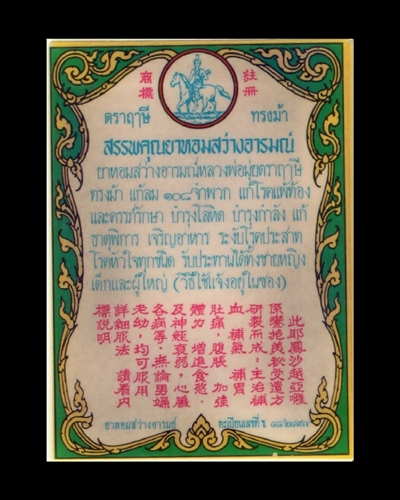 註冊
商標
ตราฤาษี ทรงม้า
สรรพคุณยาหอมสว่างอารมณ์
ยาหอมสว่างอารมณ์หลวงพ่อมุ่ยตราฤาษี
ทรงม้า แก้ลม ๑๐๘ จำพวก แก้โรคแพ้ท้อง
และครรภ์รักษา บำรุงโลหิต บำรุงกำลัง แก้
ธาตุพิการ เจริญอาหาร ระงับโรคประสาท
โรคหัวใจทุกชนิด รับประทานได้ทั้งชายหญิง
เด็กและผู้ใหญ่ (วิธีใช้แจ้งอยู่ในซอง)
此耶鳳沙越亞
係鑾抱美秘受遺方
研製而成，主治補
血、補氣、補胃
肚痛、腹脹、加強
體力、增進食慾、
及神經衰弱、心臟
各病等、無論男婦
老幼，均可服用
詳細服法，請看內
標說明
ยาหอมสว่างอารมณ์ ทะเบียนเลขที่ ข.